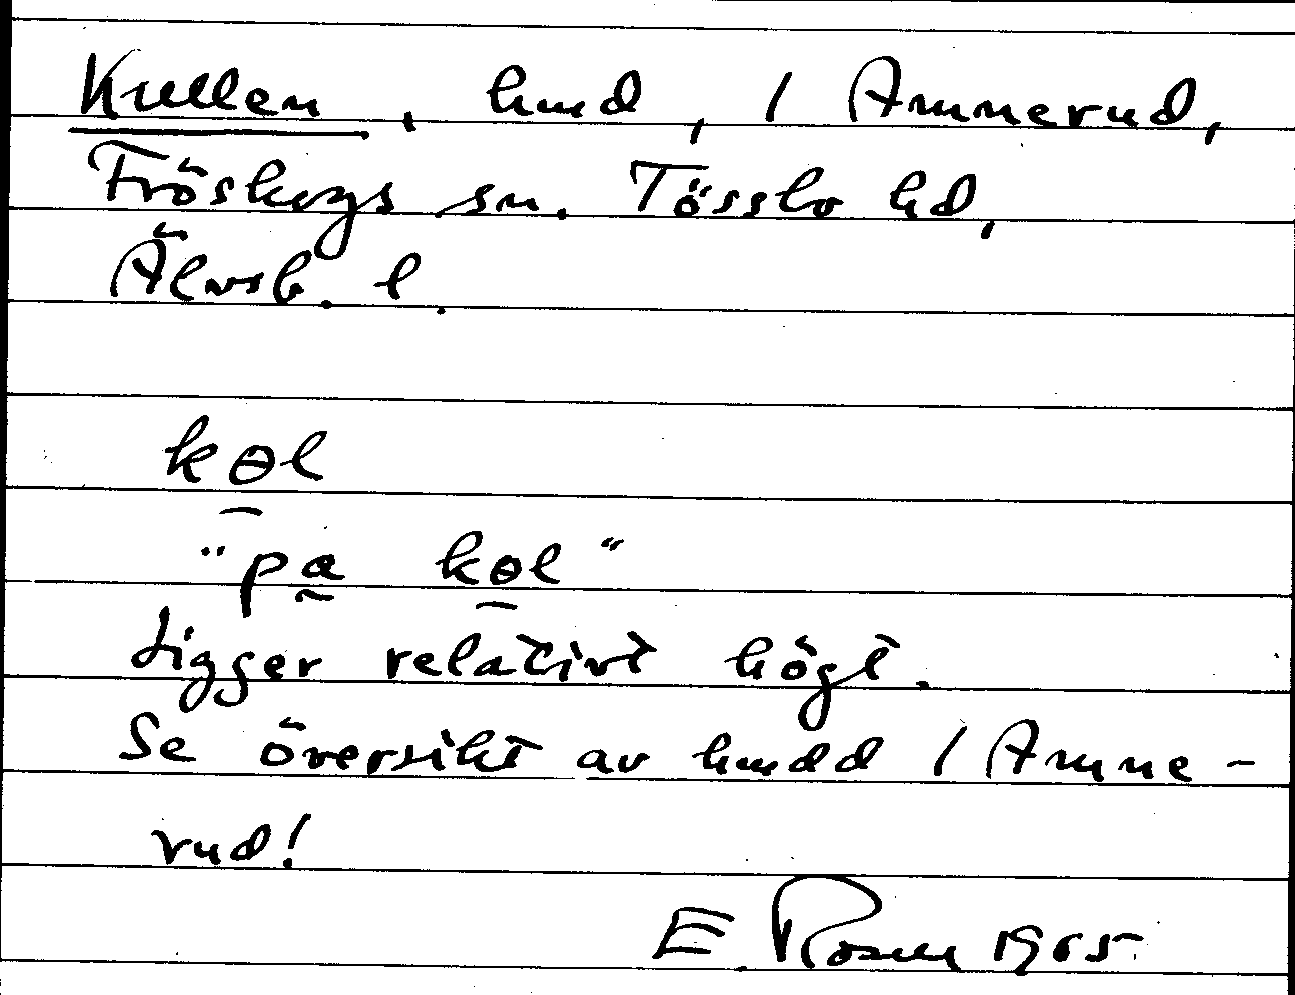 Kullen, hmd, 1 Ammerud,
Fröskogs sn. Tössbo hd,
Älvsb. l.
kɵl
"pa kɵl"
Ligger relativt högt.
Se översikt av hmdd 1 Amme-
rud!
E. Rosén 1965